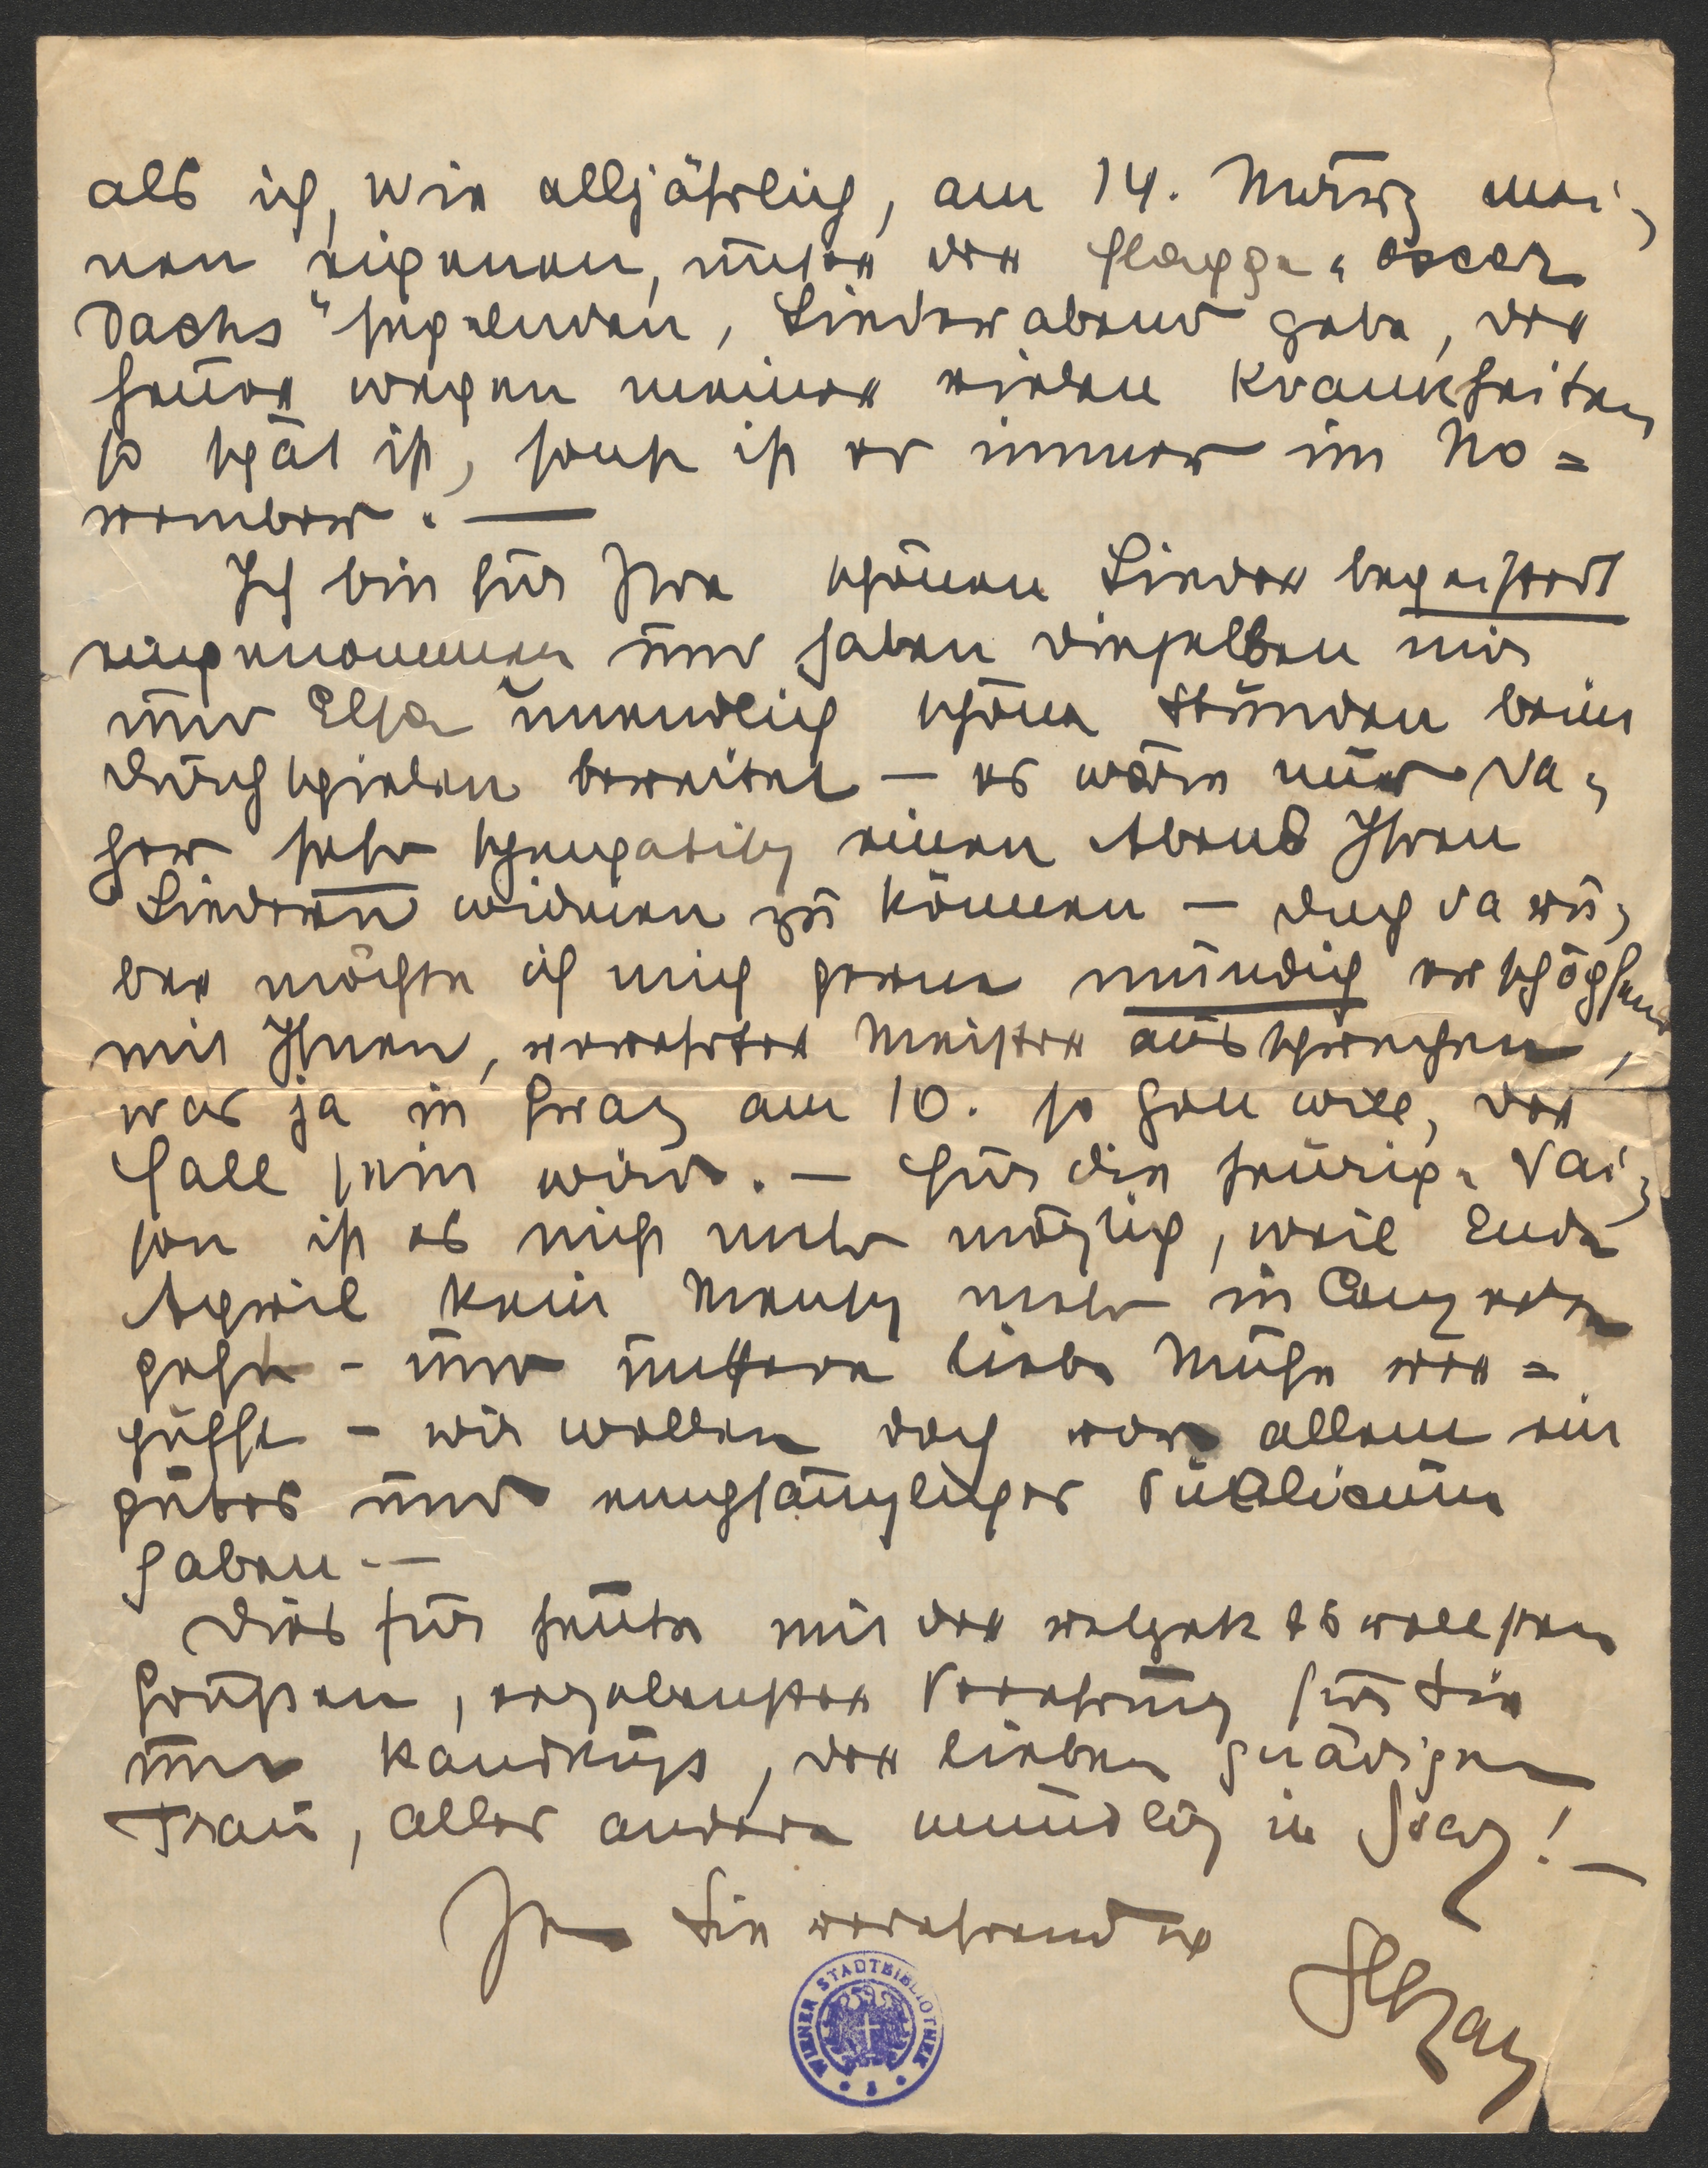 als ich, wie alljährlich, am 14. März mei-
nen eigenen, unter der Flagge "Oscar
Dachs" segelnden, Liederabend gebe, der
heuer wegen meiner vielen Krankheiten
so spät ist, sonst ist er immer im No=
vember. —
Ich bin für Ihre schönen Lieder begeistert
eingenommen und haben dieselben mir
und Elsa unendlich schöne Stunden beim
Durchspielen bereitet — es wäre mir da-
her sehr sympatisch einen Abend Ihren
Liedern widmen zu können — doch darü-
ber möchte ich mich gerne mündlich erschöpfend
mit Ihnen, verehrter Meister aussprechen,
was ja in Graz am 10. so Gott will, der
Fall sein wird. — Für die heurige Sai-
son ist es nicht mehr möglich, weil Ende
April kein Mensch mehr in Conzerte
geht - und unsere liebe Mühe ver=
pufft - wir wollen doch vor allem ein
gutes und empfängliches Publicum
haben. —
Dies für heute mit der
Grüßen, ergebenster Verehrung für Sie
und Handkuss, der lieben gnädigen
Frau, alles andere mündlich in Graz! —
Ihr Sie verehrender
WIENER STADTBIBLIOTHEK